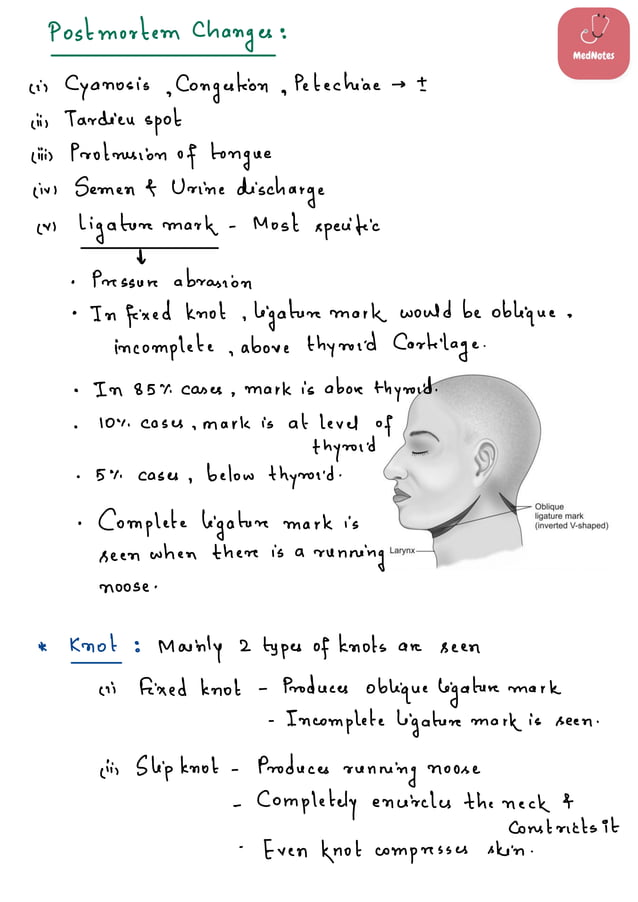 Postmortem Changes :
MedNotes
(i) Cyanosis , Congestion , Petechiae → ±
(ii) Tardieu spot
(iii) Protrusion of tongue
(iv) Semen & Urine discharge
(v) Ligature mark - Most specific
↓
• Pressure abrasion
• In fixed knot , ligature mark would be oblique ,
incomplete , above thyroid Cartilage.
• In 85% cases , mark is above thyroid.
• 10% cases , mark is at level of
thyroid
• 5% cases , below thyroid.
• Complete ligature mark is
seen when there is a running
noose.
Oblique
ligature mark
(inverted V-shaped)
Larynx
* Knot : Mainly 2 types of knots are seen
(i) Fixed knot - Produces oblique ligature mark
- Incomplete ligature mark is seen.
(ii) Slip knot - Produces running noose
- Completely encircles the neck &
Constricts it
• Even knot compresses skin.